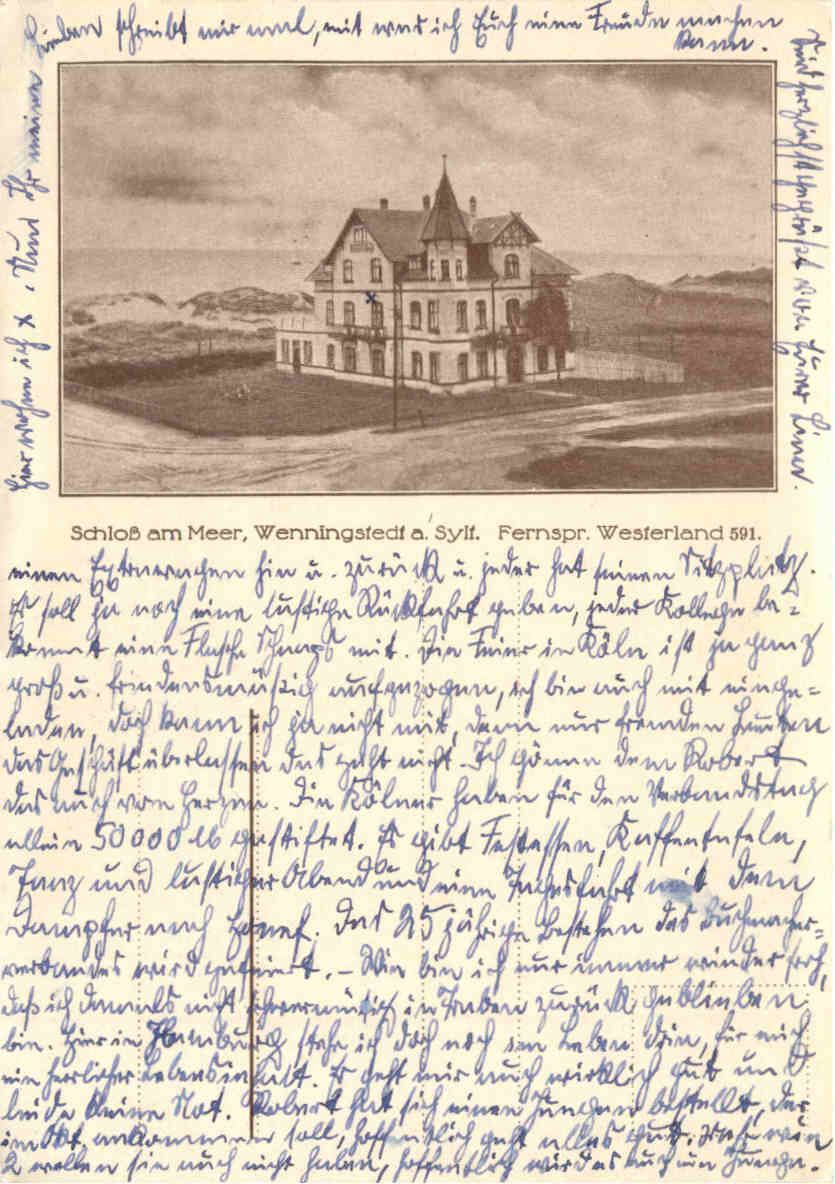 Hier wohne ich x. Nun Ihr meine
Lieben schreibt mir mal, mit was ich Euch eine Freude machen
kann.
Seid herzlichst gegrüßt von Eurer
Schloß am Meer, Wenningstedt a. Sylt. Fernspr. Westerland 591.
einen Extrawagen hin u. zurück u. jeder hat seinen Sitzplatz.
Es soll ja noch eine lustige Rückfahrt geben, jeder Kollege be-
kommt eine Flasche Schnaps mit. Die Feier in Köln ist ja ganz
groß u. friedensmäßig aufgezogen, ich bin auch mit einge-
laden, doch kann ich ja nicht mit, denn nur fremden Leuten
das Geschäft überlassen das geht nicht. Ich gönne dem Robert
das auch von Herzen. Die Kölner haben für den Verbandstag
allein 50000 M gestiftet. Es gibt Festessen, Kaffeetafeln,
Tanz und lustiger Abend und eine Tagesfahrt mit dem
Dampfer nach Honnef. Das 25 jährige Bestehen des Buchmacher-
verbandes wird gefeiert. – Wie bin ich nur immer wieder froh,
daß ich damals nicht in Traben zurück geblieben
bin. Hier in Hamburg stehe ich doch noch im Leben drin, für mich
ein herrlicher Lebensinhalt. Es geht mir auch wirklich gut und
leide keine Not. Robert hat sich einen Jungen bestellt, der
im Okt. ankommen soll, hoffentlich geht alles gut.
2 wollen sie auch nicht haben, hoffentlich wird es auch ein Junge.